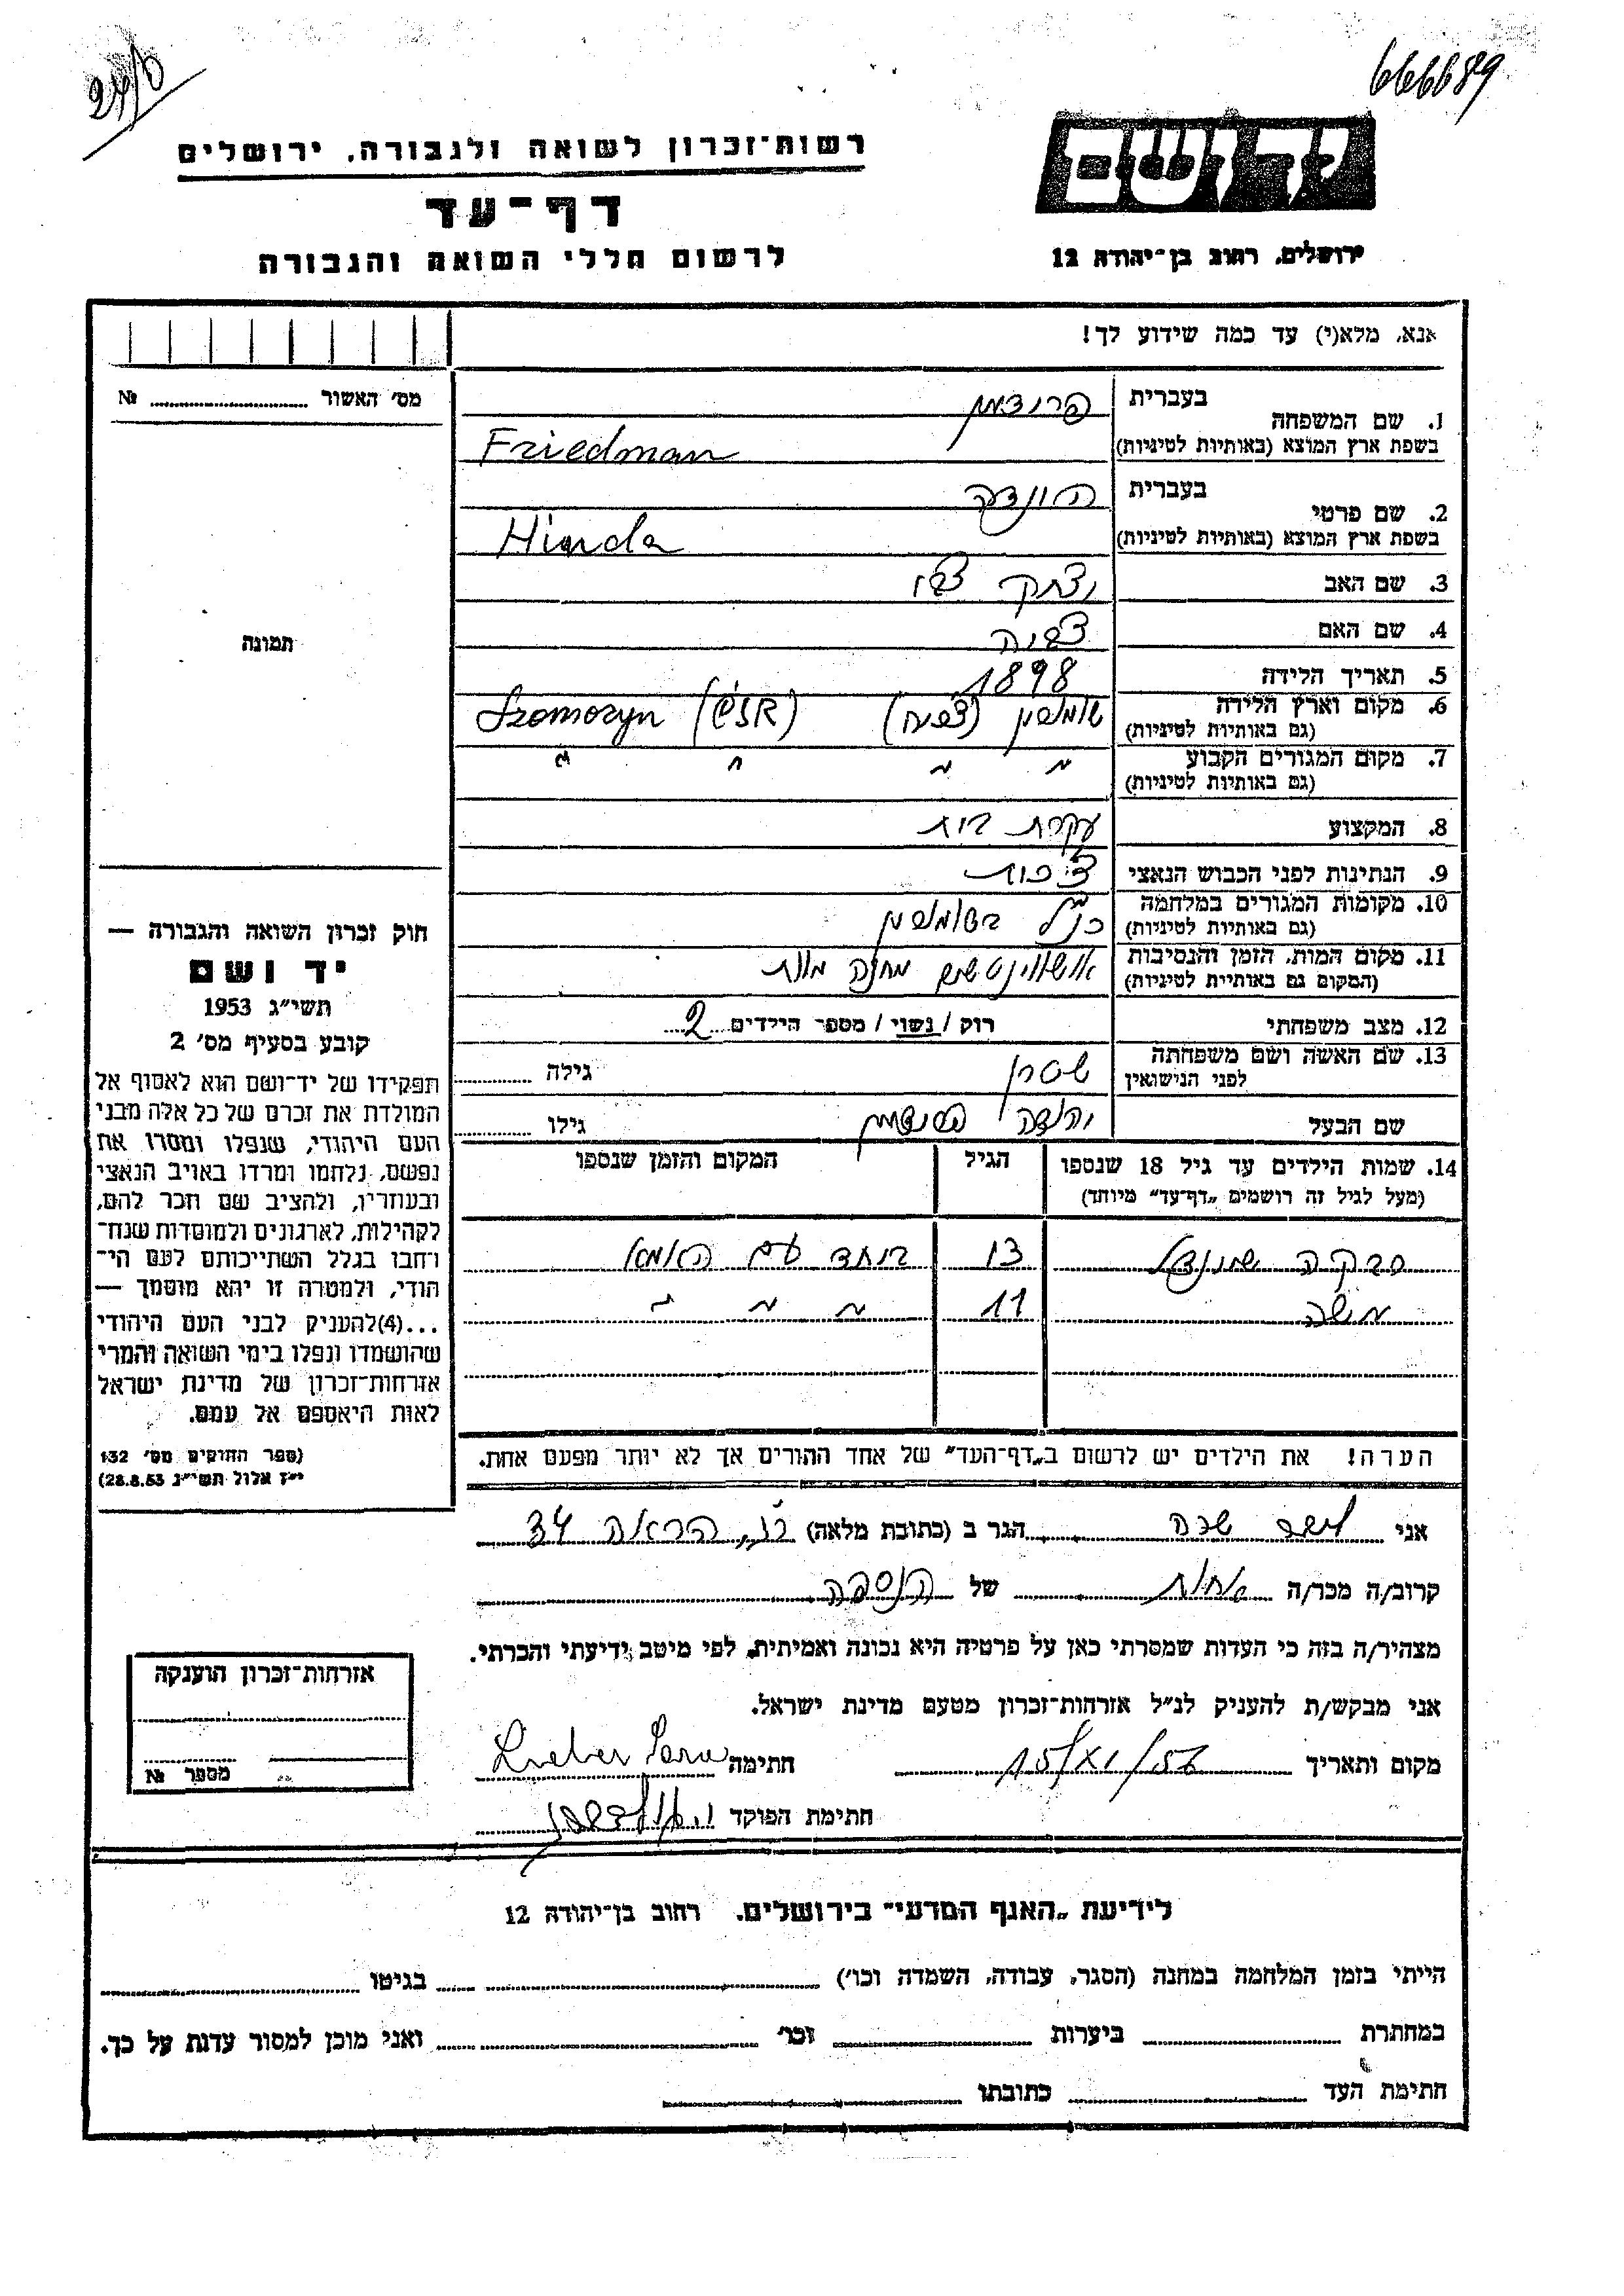 666689
רשות־זכרון לשואה ולגבורה, ירושלים
דף־עד
לרשום חללי השואה והגבורה
יד ושם
ירושלים, רחוב בן־יהודה 12
אנא, מלא(י) עד כמה שידוע לך!
מס' האשור №
תמונה
1. שם המשפחה בעברית פרידמן
בשפת ארץ המוצא (באותיות לטיניות) Friedman
2. שם פרטי בעברית הינדה
בשפת ארץ המוצא (באותיות לטיניות) Hinda
3. שם האב יצחק צבי
4. שם האם צביה
5. תאריך הלידה 1898
6. מקום וארץ הלידה (גם באותיות לטיניות) (ČSR) Szomozyn
7. מקום המגורים הקבוע (גם באותיות לטיניות) " " " "
8. המקצוע עקרת בית
9. הנתינות לפני הכבוש הנאצי צ'כית
10. מקומות המגורים במלחמה (גם באותיות לטיניות) כנ"ל
11. מקום המות, הזמן והנסיבות (המקום גם באותיית לטיניות) מחנה מות
12. מצב משפחתי רוק / נשוי / מספר הילדים 2
13. שם האשה ושם משפחתה לפני הנישואין שטרן גילה
שם הבעל יהודה פרידמן גילו
14. שמות הילדים עד גיל 18 שנספו (מעל לגיל זה רושמים „דף־עד" מיוחד) הגיל המקום והזמן שנספו
רבקה שיינדל 13 ביחד עם האמא
משה 11 " " "
הערה! את הילדים יש לרשום ב„דף־העד" של אחד ההורים אך לא יותר מפעם אחת.
חוק זכרון השואה והגבורה —
יד ושם
תשי״ג 1953
קובע בסעיף מס' 2
תפקידו של יד־ושם הוא לאסוף אל
המולדת את זכרם של כל אלה מבני
העם היהודי, שנפלו ומסרו את
נפשם, נלחמו ומרדו באויב הנאצי
ובעוזריו, ולהציב שם וזכר להם,
לקהילות, לארגונים ולמוסדות שנח־
רחבו בגלל השתייכותם לעם הי־
הודי, ולמטרה זו יהא מוסמך —
...(4)להעניק לבני העם היהודי
שהושמדו ונפלו בימי השואה והמרי
אזרחות־זכרון של מדינת ישראל
לאות היאספם אל עמם.
(ספר החוקים מס' 132
י״ז אלול תשי״ג 28.8.53)
אני ליבר שרה הגר ב (כתובת מלאה) הרואה 34
קרוב/ה מכר/ה אחות של הנספה
מצהיר/ה בזה כי העדות שמסרתי כאן על פרטיה היא נכונה ואמיתית, לפי מיטב ידיעתי והכרתי.
אני מבקש/ת להעניק לנ״ל אזרחות־זכרון מטעם מדינת ישראל.
מקום ותאריך 15/XI/56 חתימה Lieber Sara
חתימת הפוקד
אזרחות־זכרון הוענקה
מספר №
לידיעת „האגף המדעי" בירושלים, רחוב בן־יהודה 12
הייתי בזמן המלחמה במחנה (הסגר, עבודה, השמדה וכו') בגיטו
במחתרת ביערות וכו' ואני מוכן למסור עדות על כך.
חתימת העד כתובתו